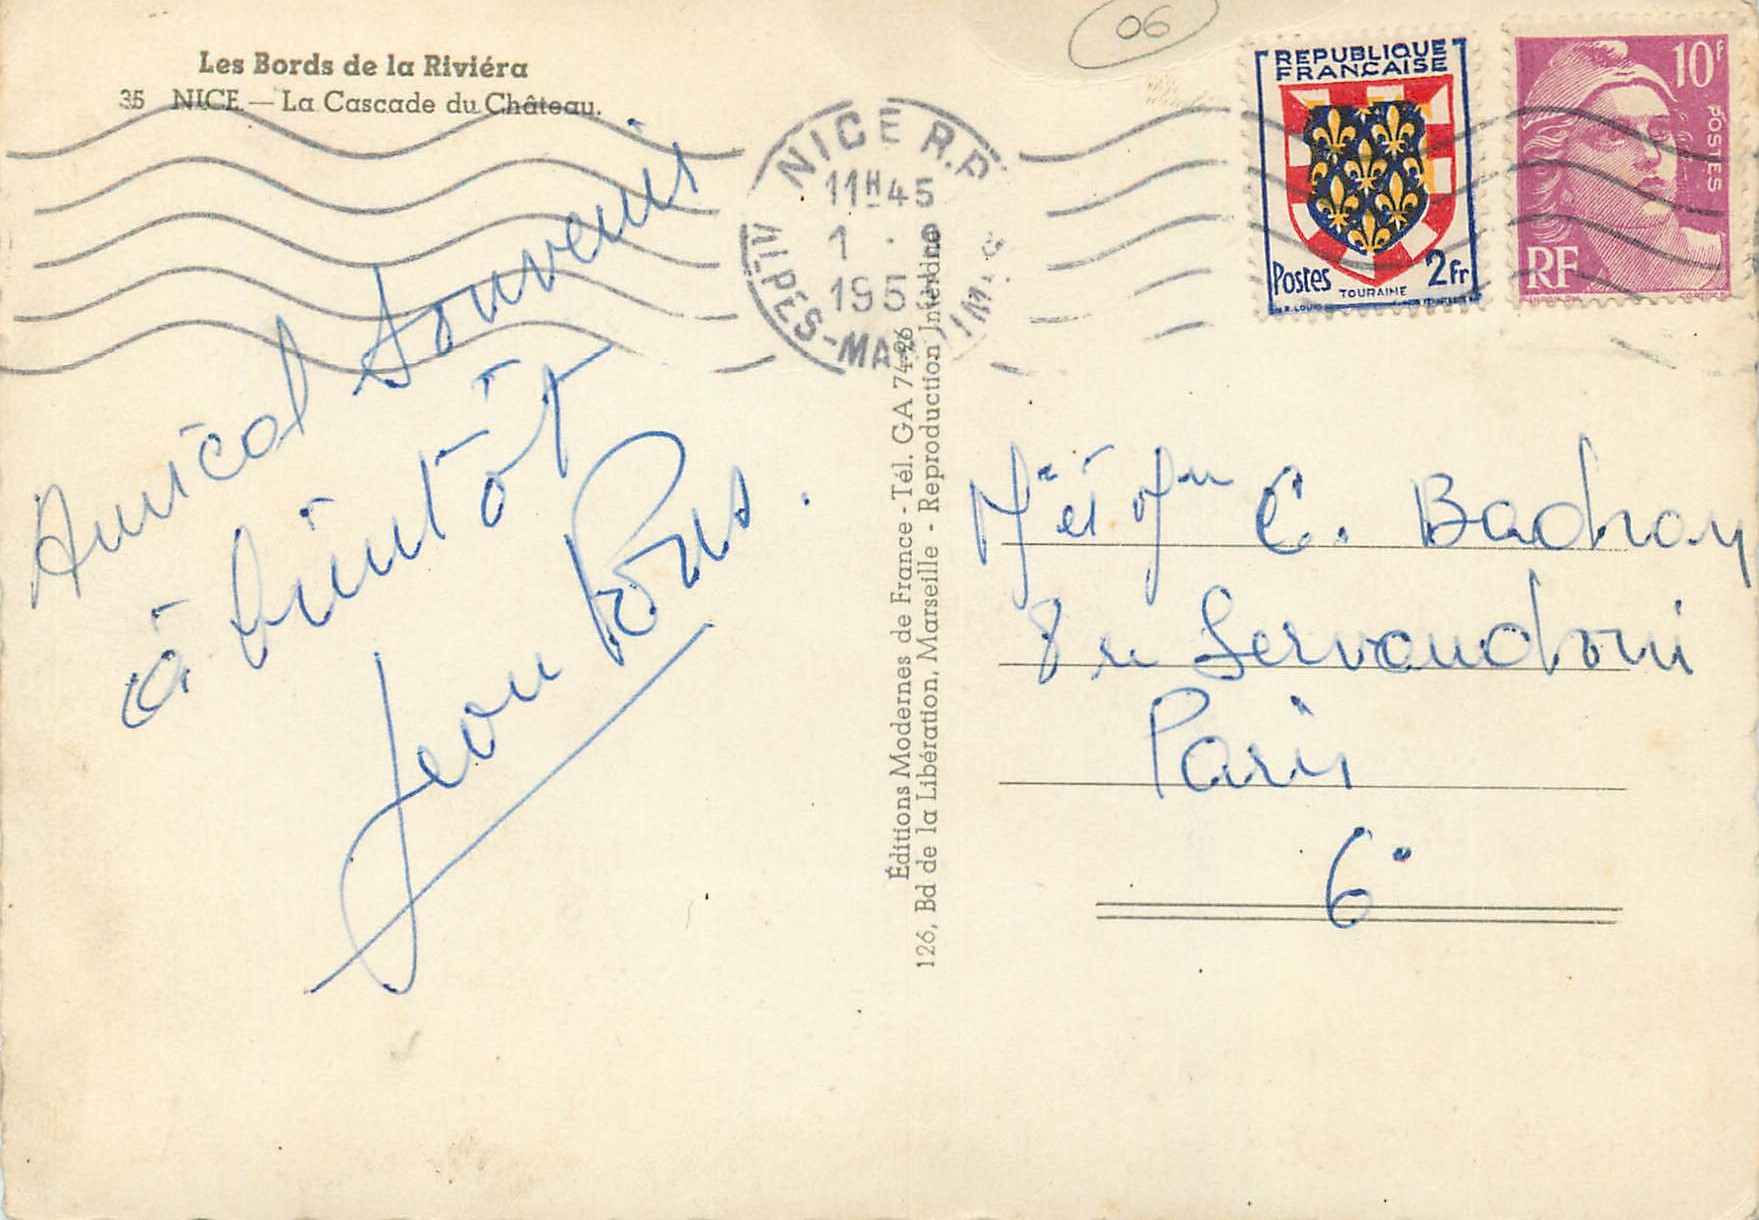 Les Bords de la Riviéra
35 NICE — La Cascade du Château.
06
NICE R.P.
11H45
1 ·
195
ALPES-MARITIMES
REPUBLIQUE
FRANÇAISE
Postes TOURAINE 2fr
10f
POSTES
RF
Amical Souvenir
à bientôt
Jean Pons.
Éditions Modernes de France - Tél. GA 74-26
126, Bd de la Libération, Marseille - Reproduction Interdite
Mr et Mme C. Badnay
8 rue Servandoni
Paris
6e